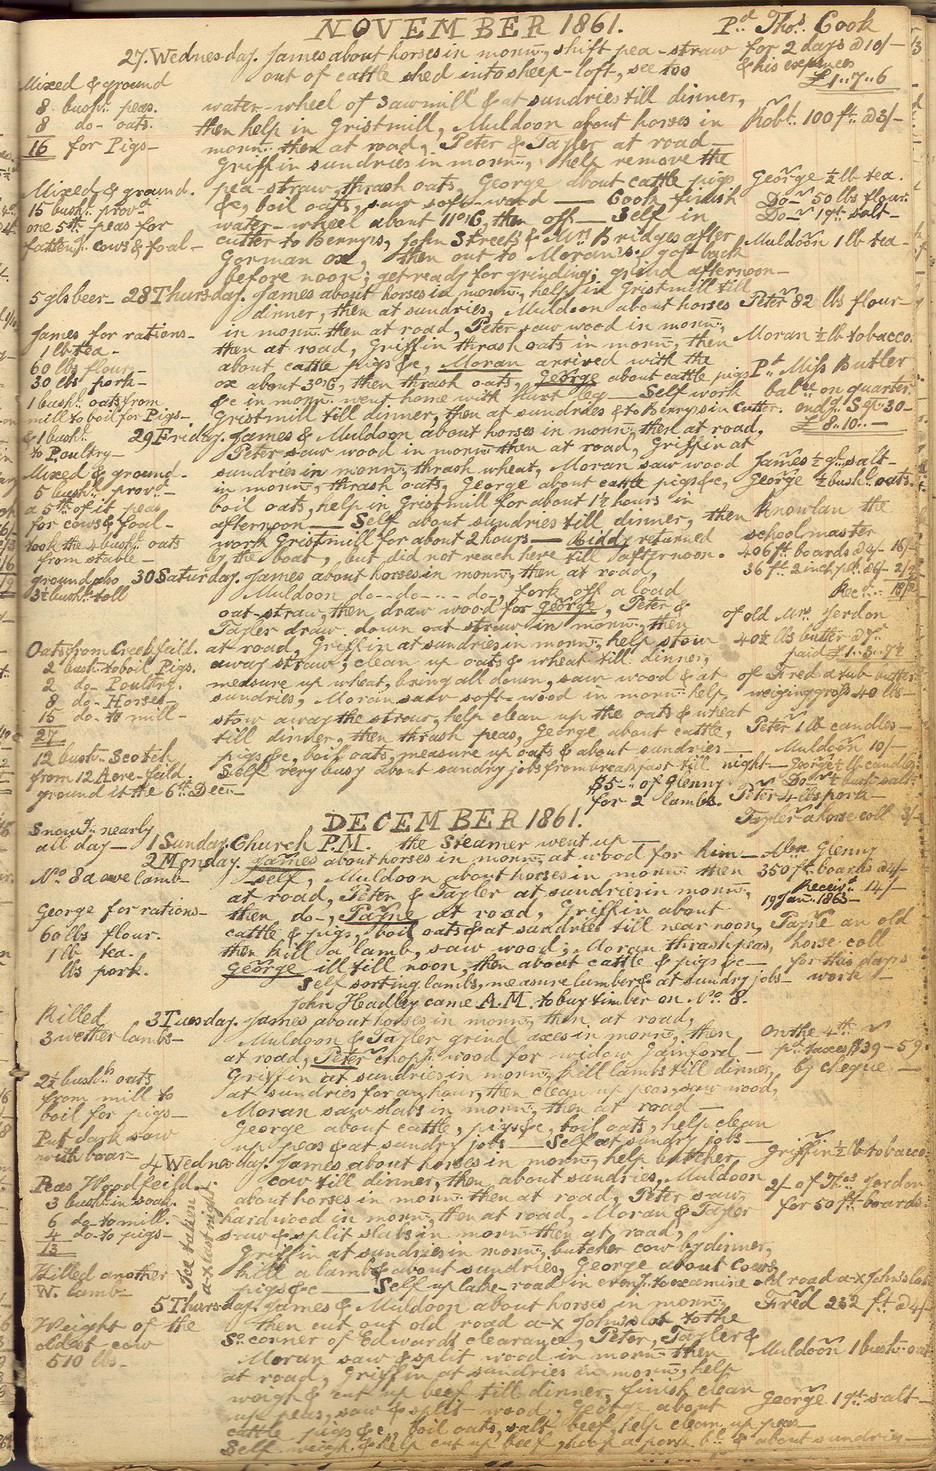 NOVEMBER 1861.
Pd. Thos. Cook
27. Wednesday. James about horses in mornn., shift pea-straw
for 2 days @ 10/-
out of cattle shed into sheep-loft, see too
& his expences
£1..7..6
Mixed & ground
8 bushs. peas.
8 do- oats.
16 for Pigs-
water-wheel of Sawmill & at sundries till dinner,
then help in Gristmill, Muldoon about horses in
mornn. then at road, Peter & Tayler at road-
Griffin sundries in mornn., help remove the
Robt. 100 ft. @ 3/-
Mixed & ground.
15 bushs. provd.
one 5th. peas for
fatteng. cows & foal-
pea-straw, thrash oats, George about cattle pigs
&c, boil oats, saw soft-wood — Cook finish
water-wheel about 11 o'C, then off — Self in
cutter to Berrys, John Street's & Mrs. Bridges after
Gorman ox, then out to Moran's: got back
before noon; get ready for grinding; grind afternoon-
George ½ lb tea.
Do- 50 lbs flour.
Do- 19t. salt-
Muldoon 1 lb tea-
5 gls beer-
28 Thursday. James about horses in mornn., help in Gristmill till
dinner, then at sundries, Muldoon about horses
in mornn. then at road, Peter saw wood in mornn.,
then at road, Griffin thrash oats in mornn., then
about cattle pigs &c, Moran arrived with the
ox about 3 o'C, then thrash oats, George about cattle pigs
&c in mornn. went home with hurt leg — Self work
Gristmill till dinner, then at sundries & to Berrys in Cutter.
Peter 82 lbs flour-
Moran ½ lb tobacco.
Pd. Miss Butler
balce. on quarter
endg. Sep. 30-
£8..10..-
James for rations-
1 lb tea-
60 lbs flour-
30 lbs pork-
1 bushl. oats from
mill to boil for Pigs-
& 1 bushl.
to Poultry-
29 Friday. James & Muldoon about horses in mornn., then at road,
Peter saw wood in mornn. then at road, Griffin at
sundries in mornn., thrash wheat, Moran saw wood
in mornn., thrash oats, George about cattle pigs &c,
boil oats, help in Gristmill for about 1½ hours in
afternoon — Self about sundries till dinner, then
work Gristmill for about 2 hours — Biddy returned
by the boat, but did not reach here till afternoon.
James ½ gt. salt-
George ½ bushl. oats.
Knowlan the
schoolmaster
406 ft. boards @ 4/- 16/-
36 ft. 2 inch plk.
Mixed & ground-
5 bushls. provd.-
a 5th. of it peas
for cows & foal-
took the 4 bushls. oats
from stable-
ground also
3½ bushls. toll
30 Saturday. James about horses in mornn., then at road,
Muldoon do--do---do-, fork off a load
oat-straw, then draw wood for George, Peter &
Tayler draw down oat straw in mornn., then
at road, Griffin at sundries in mornn., help stow
away straw, clean up oats & wheat till dinner,
measure up wheat, bring all down, saw wood & at
sundries, Moran saw soft-wood in mornn. help,
stow away the straw, help clean up the oats & wheat
till dinner, then thrash peas, George about cattle,
pigs &c, boil oats, measure up oats & about sundries-
Self very busy about sundry jobs from breakfast till night-
of old Mrs. Yerdon
40½ lbs butter
of Fred a tub butter
weiging gross 40 lbs-
Peter 1 lb candles-
Muldoon 10/-
George ½ lb candles
Do- ½ bush salt-
Oats from Creek feild.
2 bush. to boil Pigs.
2 do- Poultry.
8 do- Horses-
15 do- to mill-
27
12 bush. Scotch
from 12 Acre-feild.
ground it the 6th. Decr.-
$5-.. of Glenny
for 2 lambs.
Peter 4 lbs pork-
Tayler a horse coll 3/-
DECEMBER 1861.
Snowg. nearly
all day-
1 Sunday. Church P.M. the Steamer went up —
2 Monday. James about horses in mornn., at wood for him-
self, Muldoon about horses in mornn. then
at road, Peter & Tayler at sundries in mornn.,
then do-, Payne at road, Griffin about
cattle & pigs, boil oats & at sundries till near noon,
then kill a lamb, saw wood, Moran thrash peas,
George ill till noon, then about cattle & pigs &c-
Self sorting lambs, measure lumber & at sundry jobs-
John Headley came A.M. to buy timber on No. 8.
Alexr. Glenny
350 ft. boards @ 4/-
Receivd. 14/-
19 Jan. 1863-
Payne an old
horse coll
for this days
work-
No. 8 a ewe lamb-
George for rations-
60 lbs flour.
1 lb tea.
lbs pork.
Killed
3 wether lambs-
3 Tuesday. James about horses in mornn., then at road,
Muldoon & Tayler grind axes in mornn., then
at road, Peter chopp wood for widow Bamford-
Griffin at sundries in mornn., kill lambs till dinner,
at sundries for an hour, then clean up peas, saw wood,
Moran saw slabs in mornn., then at road-
George about cattle, pigs &c, boil oats, help clean
up peas & at sundry jobs — Self at sundry jobs-
On the 4th.
pd. taxes $39-59
by cheque-
2½ bushs. oats
from mill to
boil for pigs-
Put dark sow
with boar-
4 Wednesday. James about horses in mornn., help butcher
cow till dinner, then about sundries, Muldoon
about horses in mornn. then at road, Peter saw
hardwood in mornn., then at road, Moran & Tayler
saw & split slabs in mornn., then at road,
Griffin at sundries in mornn., butcher cow by dinner,
kill a lamb & about sundries, George about Cows,
pigs &c — Self up lake-road in eveng. to examine old road a-x John's lot
Griffin ½ lb tobacco-
2/- of Thos. Yerdon
for 50 ft boards-
Peas Wood feild-
3 bush. in sow.
6 do- to mill.
4 do- to pigs-
13
Killed another
W. lamb-
Ice taken
a-x last night
5 Thursday. James & Muldoon about horses in mornn.
then cut out old road a-x John's lot to the
So. corner of Edwards clearance, Peter, Tayler &
Moran saw & split wood in mornn. then
at road, Griffin at sundries in mornn., help
weigh & cut up beef till dinner, finish clean
up peas, saw & split wood, George about
cattle pigs &c, boil oats, salt beef, help clean up peas-
Self weigh & help cut up beef, hoop a pork bl. & about sundries-
Fred 232 ft @ 4/-
Muldoon 1 bush. oats
George 1 gt. salt-
Weight of the
oldest cow
510 lbs-